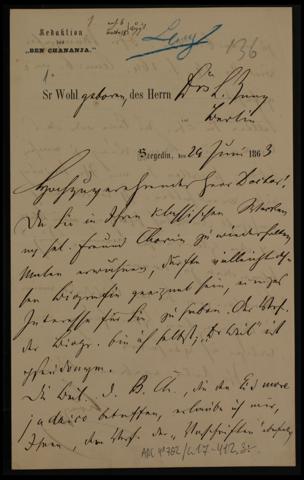 Redaktion
des
„BEN CHANANJA."
136
1.
Sr Wohl geboren, des Herrn Drs L. Zunz
Berlin
Szegedin, den 24 Juni 1863
Hochzuverehrender Herr Doctor!
Da Sie in Ihren klassischen Werken
sel. Freund Chorin zu wiederholten
Malen erwähnen, dürfte vielleicht
Biografie geeignet sein, einiges
Interesse für Sie zu haben. Der Verf.
der Biogr. bin ich selbst; „Dr Weil" ist
pseudonym.
Die Beil. d. B. Ch., die den Eid more
judaico betreffen, erlaube ich mir,
Ihnen, dem Verf. der „Vorschriften
ARC 4° 792/G.17-412.3: